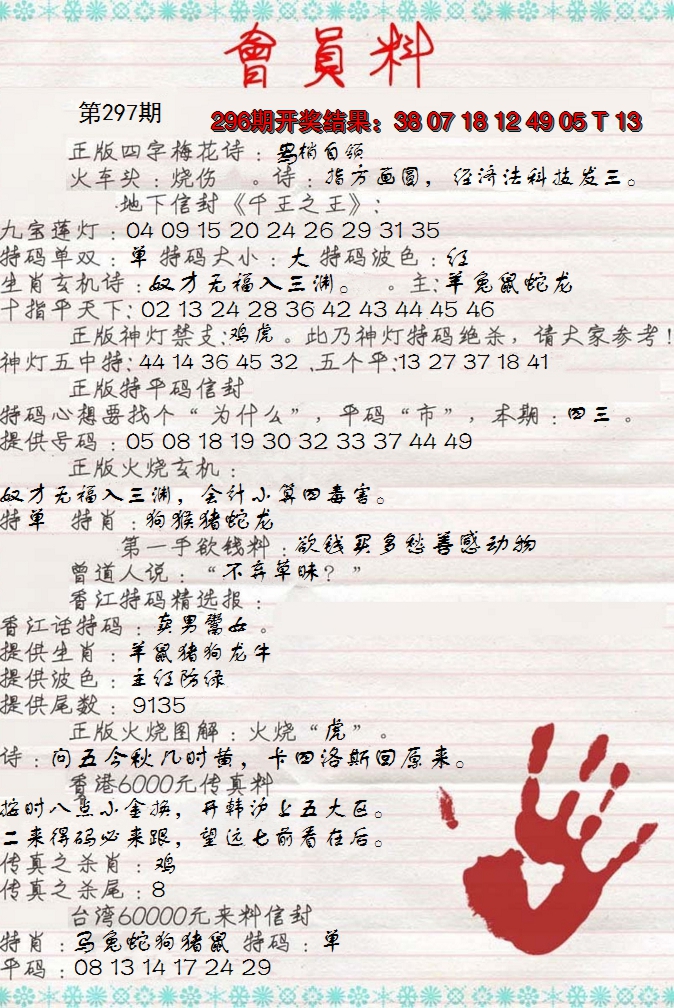 會員料
第297期
296期开奖结果：38 07 18 12 49 05 T 13
正版四字梅花诗：鸟梢自领
火车头：烧伤 。诗：指方画圆，经济法科技发三。
地下信封《千王之王》：
九宝莲灯：04 09 15 20 24 26 29 31 35
特码单双：单 特码大小：大 特码波色：红
生肖玄机诗：奴才无福入三渊。 。主:羊兔鼠蛇龙
十指平天下:02 13 24 28 36 42 43 44 45 46
正版神灯禁支:鸡虎。此乃神灯特码绝杀，请大家参考!
神灯五中特:44 14 36 45 32 .五个平:13 27 37 18 41
正版特平码信封
特码心想要找个“为什么”，平码“市”，本期：四三。
提供号码：05 08 18 19 30 32 33 37 44 49
正版火烧玄机：
奴才无福入三渊，会计小算四毒害。
特单 特肖：狗猴猪蛇龙
第一手欲钱料：欲钱买多愁善感动物
曾道人说：“不弃草昧？”
香江特码精选报：
香江话特码：卖男鬻女。
提供生肖：羊鼠猪狗龙牛
提供波色：主红防绿
提供尾数：9135
正版火烧图解：火烧“虎”。
诗：问五今秋几时黄，卡四洛斯回原来。
香港6000元传真料
按时八点小金换，开韩沙上五大区。
二来得码必来跟，望远七前看在后。
传真之杀肖：鸡
传真之杀尾：8
台湾60000元来料信封
特肖：马兔蛇狗猪鼠 特码：单
平码：08 13 14 17 24 29